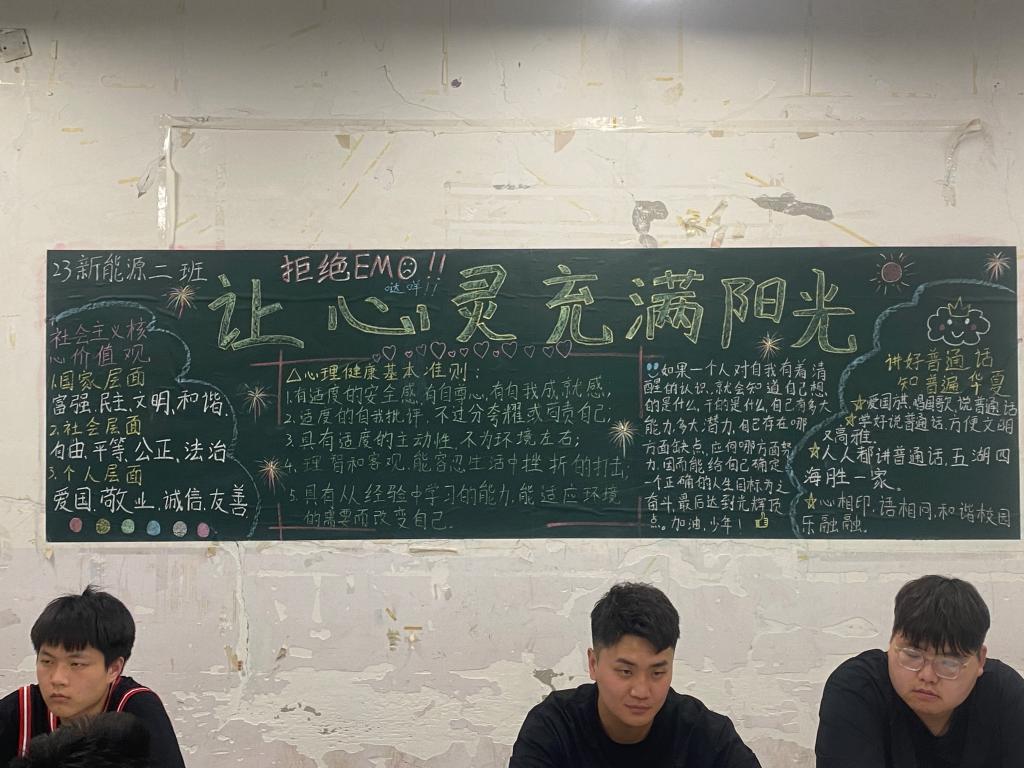 23新能源二班
拒绝EMO!!
哒咩!!
让心灵充满阳光
社会主义核
心价值观
1.国家层面
富强、民主、文明、和谐、
2.社会层面
自由、平等、公正、法治
3.个人层面
爱国、敬业、诚信、友善
△心理健康基本准则：
1.有适度的安全感,有自尊心,有自我成就感,
2.适度的自我批评,不过分夸耀或苛责自己;
3.具有适度的主动性,不为环境左右;
4.理智和客观,能容忍生活中挫折的打击;
5.具有从经验中学习的能力,能适应环境
的需要而改变自己.
如果一个人对自我有着清
醒的认识,就会知道自己想
的是什么,干的是什么,自己有多大
能力,多大潜力,自己存在哪
方面缺点,应何哪方面努
力,因而能给自己确定
一个正确的人生目标为之
奋斗,最后达到光辉顶
点。加油,少年!
讲好普通话
知普遍华夏
爱国旗,唱国歌,说普通话
学好说普通话,方便文明
又高雅.
人人都讲普通话,五湖四
海胜一家。
心相印,语相同,和谐校园
乐融融。